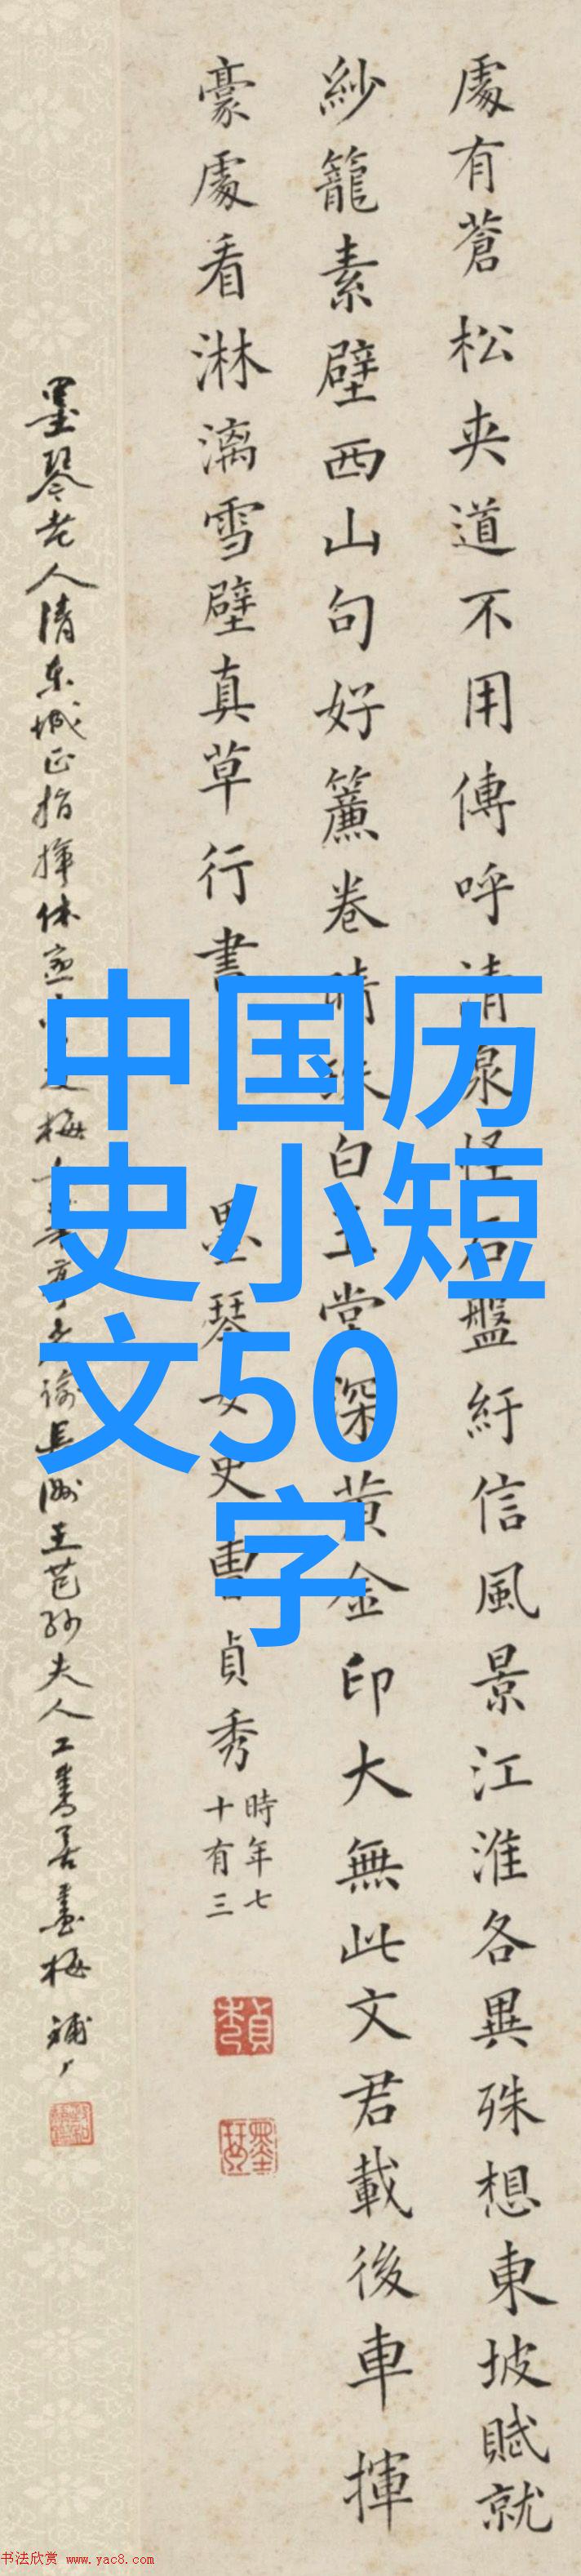 處有蒼松夾道不用傳呼清泉怪石盤紆信風景江淮各異殊想東坡賦就
紗籠素壁西山句好簾卷晴珠白玉堂深黃金印大無此文君載後車揮
豪處看淋漓雪壁真草行書
墨琴女史曹貞秀
時年七
十有三
墨琴老人清東城正指揮
長洲王芑孫夫人工書善畫梅
中国历
史小短
文50
字
书法欣赏 www.yac8.com